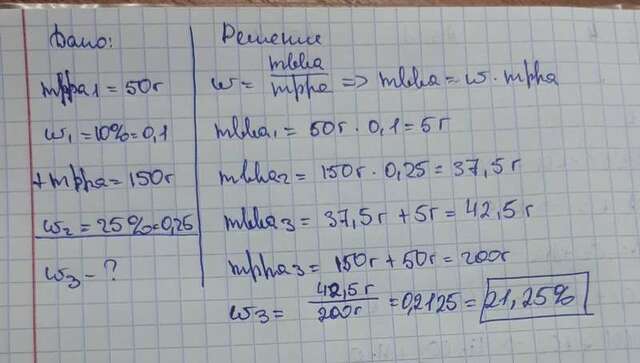 Дано:
mрра₁ = 50г
w₁ = 10% = 0,1
+ mрра = 150г
w₂ = 25% = 0,25
w₃ - ?
Решение
w = mвва / mрра => mвва = w · mрра
mвва₁ = 50г · 0,1 = 5г
mвва₂ = 150г · 0,25 = 37,5г
mвва₃ = 37,5г + 5г = 42,5г
mрра₃ = 150г + 50г = 200г
w₃ = 42,5г / 200г = 0,2125 = 21,25%